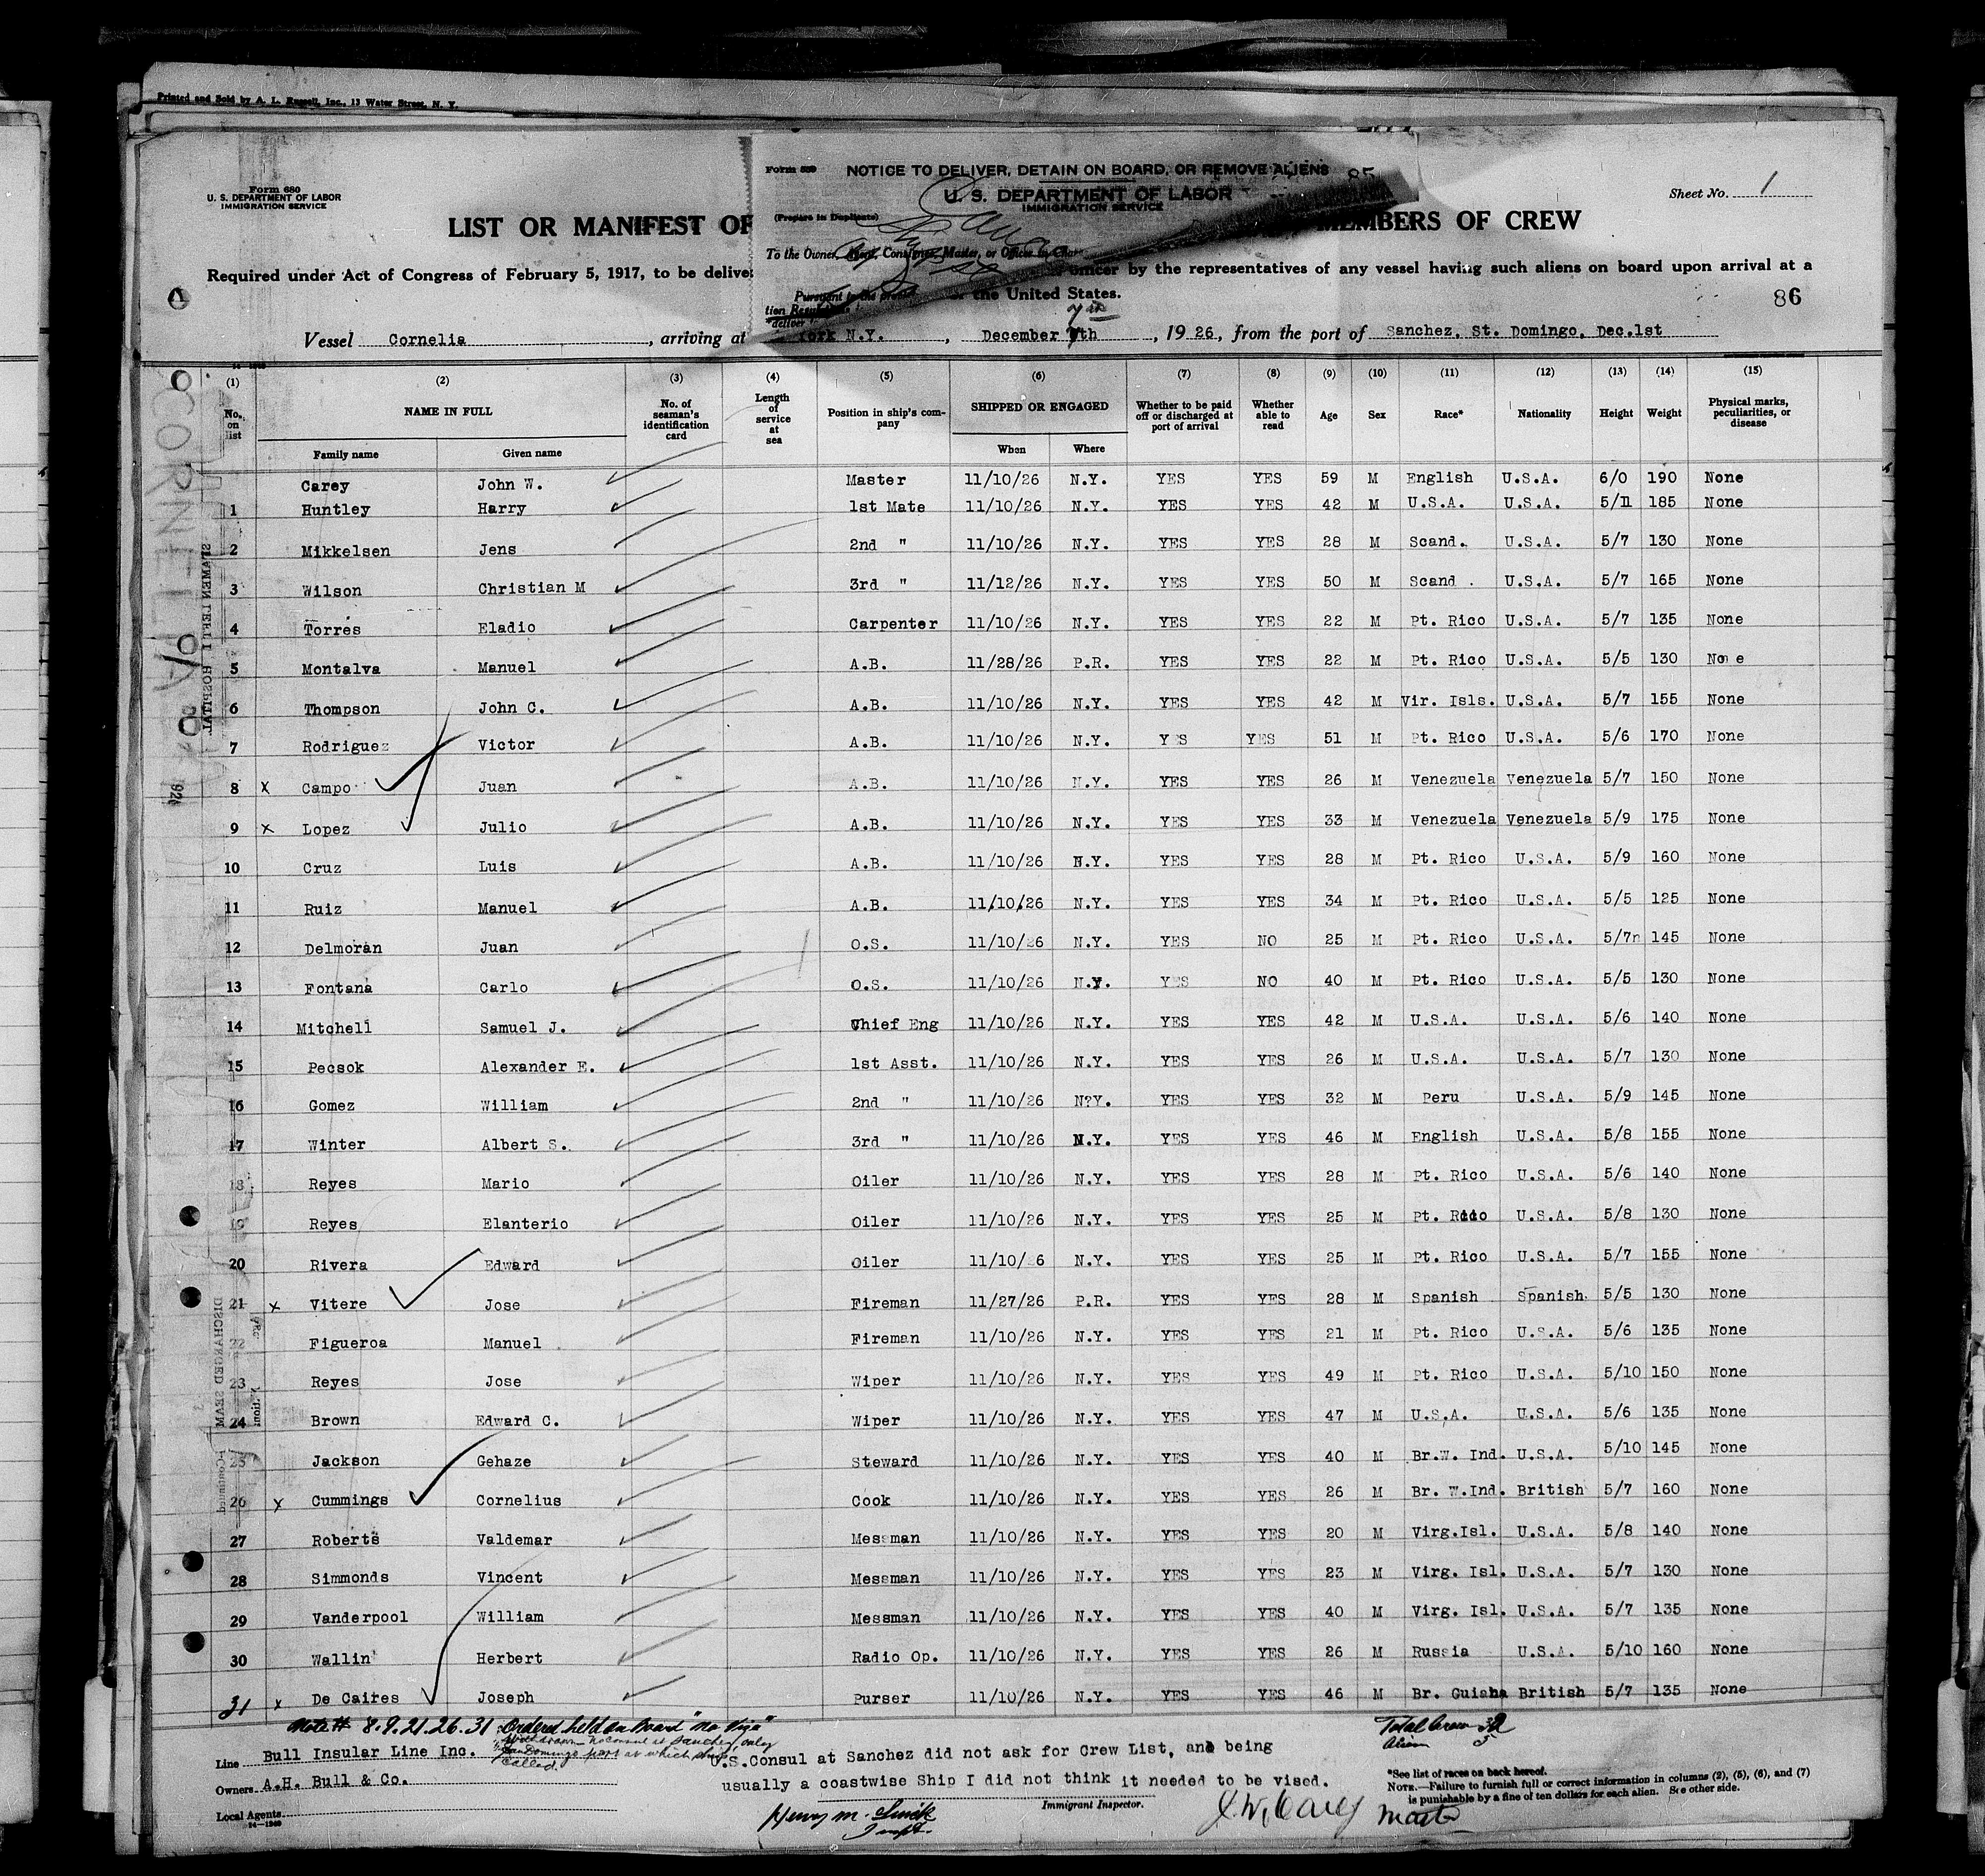 Printed and Sold by A. L. Russell, Inc., 13 Water Street, N. Y.
Form 680
U. S. DEPARTMENT OF LABOR
IMMIGRATION SERVICE
NOTICE TO DELIVER, DETAIN ON BOARD, OR REMOVE ALIENS
U. S. DEPARTMENT OF LABOR
IMMIGRATION SERVICE
(Prepare in Duplicate)
Sheet No. 1
LIST OR MANIFEST OF MEMBERS OF CREW
To the Owner, Agent, Consignee, Master, or Officer in Char
Required under Act of Congress of February 5, 1917, to be delive officer by the representatives of any vessel having such aliens on board upon arrival at a
Pursuant to the
the United States.
86
tion
"deliver
7th
Vessel Cornelia, arriving at York N.Y., December th, 1926, from the port of Sanchez, St. Domingo, Dec.1st
(1) (2) (3) (4) (5) (6) (7) (8) (9) (10) (11) (12) (13) (14) (15)
No. on list NAME IN FULL No. of seaman's identification card Length of service at sea Position in ship's company SHIPPED OR ENGAGED Whether to be paid off or discharged at port of arrival Whether able to read Age Sex Race* Nationality Height Weight Physical marks, peculiarities, or disease
Family name Given name When Where
Carey John W. Master 11/10/26 N.Y. YES YES 59 M English U.S.A. 6/0 190 None
1 Huntley Harry 1st Mate 11/10/26 N.Y. YES YES 42 M U.S.A. U.S.A. 5/11 185 None
2 Mikkelsen Jens 2nd " 11/10/26 N.Y. YES YES 28 M Scand. U.S.A. 5/7 130 None
3 Wilson Christian M 3rd " 11/12/26 N.Y. YES YES 50 M Scand. U.S.A. 5/7 165 None
4 Torres Eladio Carpenter 11/10/26 N.Y. YES YES 22 M Pt. Rico U.S.A. 5/7 135 None
5 Montalva Manuel A.B. 11/28/26 P.R. YES YES 22 M Pt. Rico U.S.A. 5/5 130 None
6 Thompson John C. A.B. 11/10/26 N.Y. YES YES 42 M Vir. Isls. U.S.A. 5/7 155 None
7 Rodriguez Victor A.B. 11/10/26 N.Y. Y S YES 51 M Pt. Rico U.S.A. 5/6 170 None
8 x Campo Juan A.B. 11/10/26 N.Y. YES YES 26 M Venezuela Venezuela 5/7 150 None
9 x Lopez Julio A.B. 11/10/26 N.Y. YES YES 33 M Venezuela Venezuela 5/9 175 None
10 Cruz Luis A.B. 11/10/26 N.Y. YES YES 28 M Pt. Rico U.S.A. 5/9 160 None
11 Ruiz Manuel A.B. 11/10/26 N.Y. YES YES 34 M Pt. Rico U.S.A. 5/5 125 None
12 Delmoran Juan O.S. 11/10/26 N.Y. YES NO 25 M Pt. Rico U.S.A. 5/7n 145 None
13 Fontana Carlo O.S. 11/10/26 N.Y. YES NO 40 M Pt. Rico U.S.A. 5/5 130 None
14 Mitchell Samuel J. Chief Eng 11/10/26 N.Y. YES YES 42 M U.S.A. U.S.A. 5/6 140 None
15 Pecsok Alexander E. 1st Asst. 11/10/26 N.Y. YES YES 26 M U.S.A. U.S.A. 5/7 130 None
16 Gomez William 2nd " 11/10/26 N?Y. YES YES 32 M Peru U.S.A. 5/9 145 None
17 Winter Albert S. 3rd " 11/10/26 N.Y. YES YES 46 M English U.S.A. 5/8 155 None
18 Reyes Mario Oiler 11/10/26 N.Y. YES YES 28 M Pt. Rico U.S.A. 5/6 140 None
19 Reyes Elanterio Oiler 11/10/26 N.Y. YES YES 25 M Pt. Rico U.S.A. 5/8 130 None
20 Rivera Edward Oiler 11/10/ 6 N.Y. YES YES 25 M Pt. Rico U.S.A. 5/7 155 None
21 x Vitere Jose Fireman 11/27/26 P.R. YES YES 28 M Spanish Spanish 5/5 130 None
22 Figueroa Manuel Fireman 11/10/26 N.Y. YES YES 21 M Pt. Rico U.S.A. 5/6 135 None
23 Reyes Jose Wiper 11/10/26 N.Y. YES YES 49 M Pt. Rico U.S.A. 5/10 150 None
24 Brown Edward C. Wiper 11/10/26 N.Y. YES YES 47 M U.S.A. U.S.A. 5/6 135 None
25 Jackson Gehaze Steward 11/10/26 N.Y. YES YES 40 M Br.W. Ind. U.S.A. 5/10 145 None
26 x Cummings Cornelius Cook 11/10/26 N.Y. YES YES 26 M Br. W.Ind. British 5/7 160 None
27 Roberts Valdemar Messman 11/10/26 N.Y. YES YES 20 M Virg.Isl. U.S.A. 5/8 140 None
28 Simmonds Vincent Messman 11/10/26 N.Y. YES YES 23 M Virg. Isl. U.S.A. 5/7 130 None
29 Vanderpool William Messman 11/10/26 N.Y. YES YES 40 M Virg. Isl. U.S.A. 5/7 135 None
30 Wallin Herbert Radio Op. 11/10/26 N.Y. YES YES 26 M Russia U.S.A. 5/10 160 None
31 x De Caires Joseph Purser 11/10/26 N.Y. YES YES 46 M Br. Guiana British 5/7 135 None
Note # 8.9.21.26.31 Ordered held on board "no visa"
withdrawn no consul at Sanchez, only
San Domingo port at which ship
called.
Total Crew 32
Alien 5
Line Bull Insular Line Inc.
U.S.Consul at Sanchez did not ask for Crew List, and being
Owners A.H. Bull & Co.
usually a coastwise Ship I did not think it needed to be vised.
*See list of races on back hereof.
NOTE.—Failure to furnish full or correct information in columns (2), (5), (6), and (7)
is punishable by a fine of ten dollars for each alien. See other side.
Local Agents
Immigrant Inspector.
Henry M.
Inspt.
J.W. Carey
Master